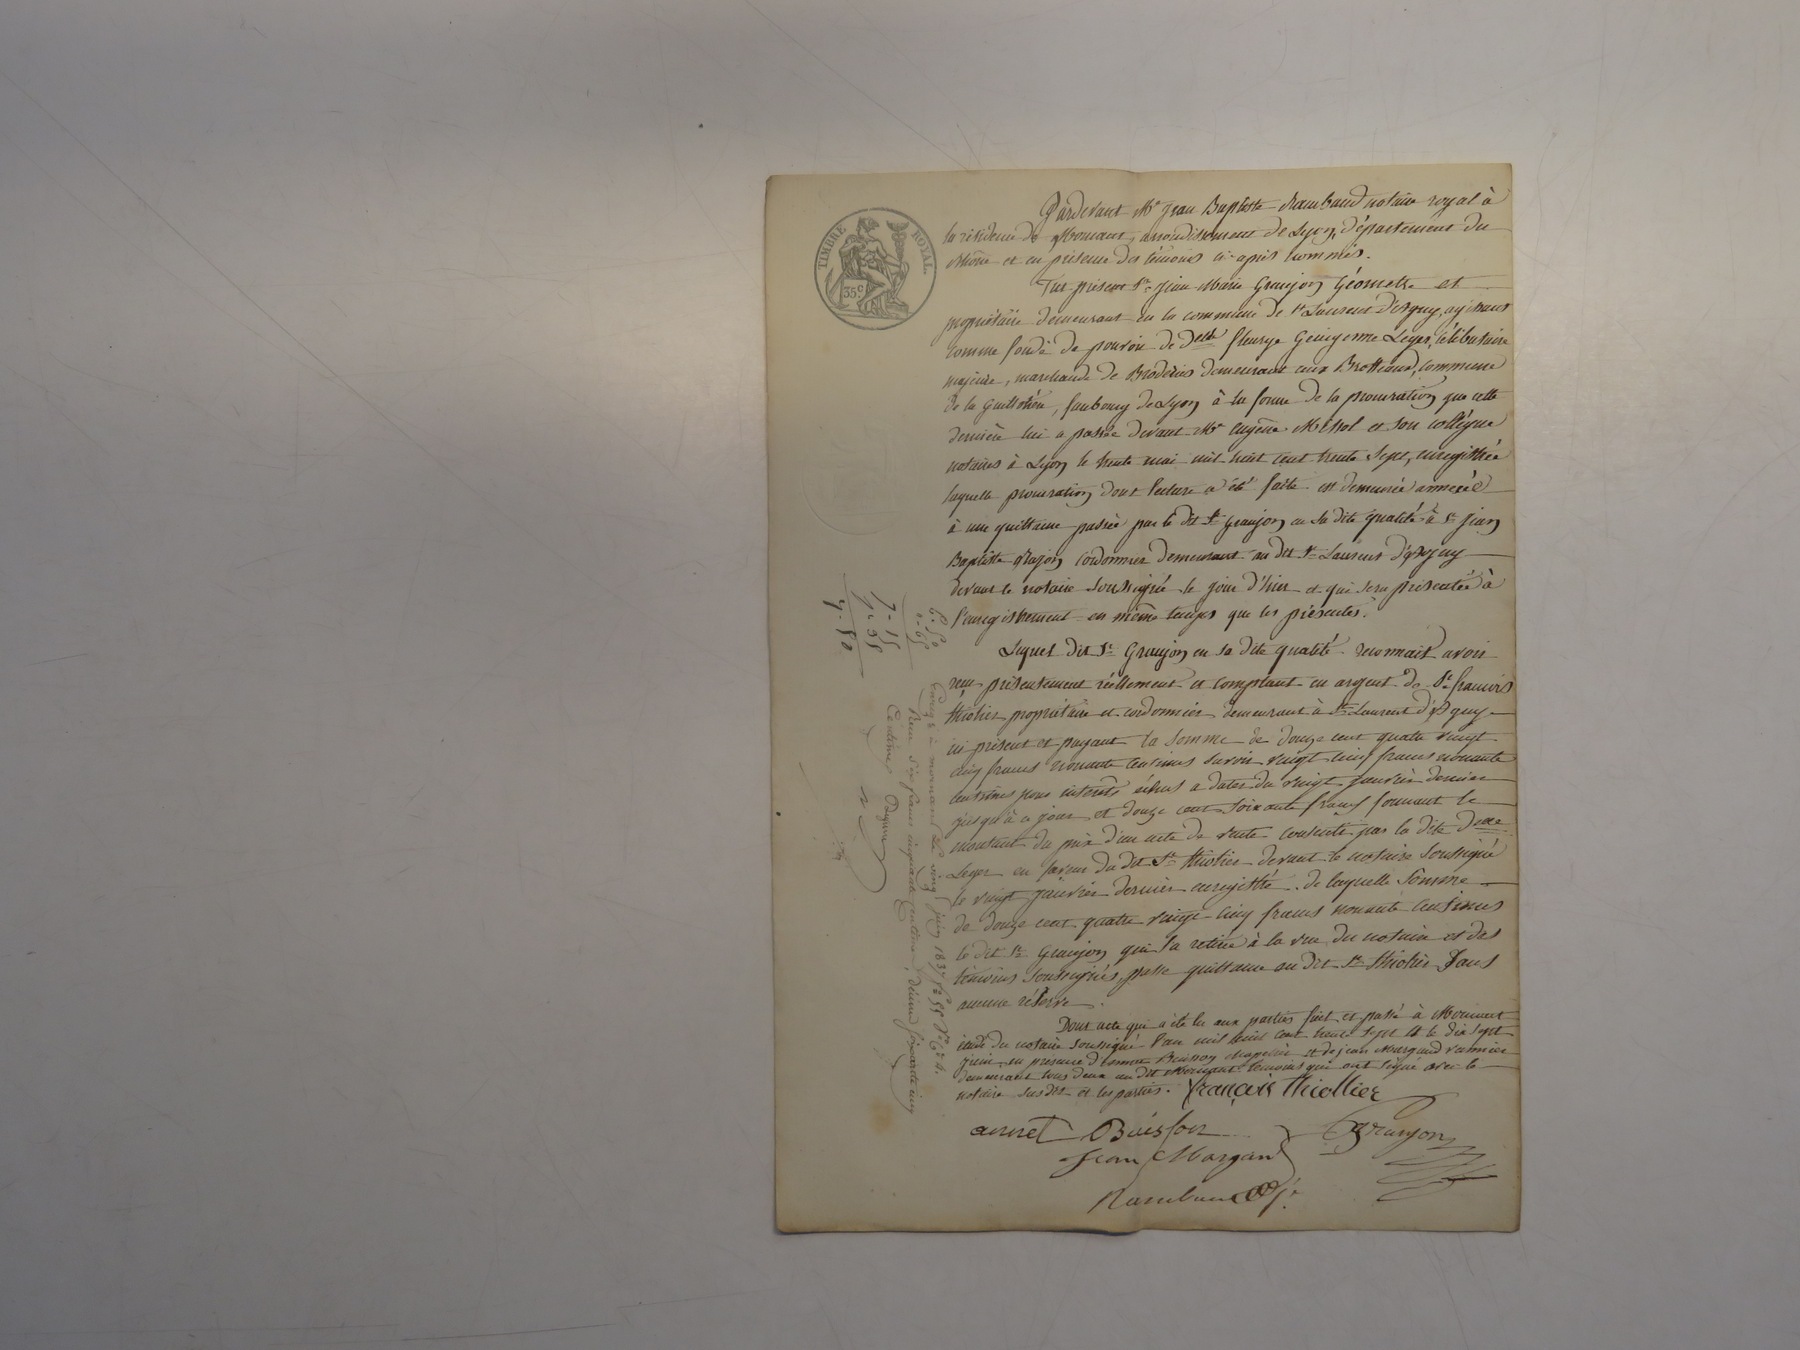 TIMBRE ROYAL.
35c
Pardevant Me Jean Baptiste Rambaud notaire royal à
la résidence de Mornant, arrondissement de Lyon, département du
Rhône et en présence des témoins ci-après nommés.
Fut présent Sr Jean Marie Granjon Géometre et
propriétaire demeurant en la commune de St Laurent d'Agny, agissant
comme fondé de pouvoir de Delle fleurye Leyer, célibataire
majeure, marchande de Broderies demeurant aux Brotteaux, commune
de la Guillotière, faubourg de Lyon à la forme de la procuration que cette
dernière lui a passée devant Me Eugène et son collègue
notaires à Lyon le trente mai mil huit cent trente sept, enregistrée
laquelle procuration dont lecture a été faite est demeurée annexée
à une quittance passée par le dit Sr Granjon en sa dite qualité à Sr Jean
Baptiste cordonnier demeurant au dit St Laurent d'Agny
devant le notaire soussigné le jour d'hier et qui sera présentée à
l'enregistrement en même temps que les présentes.
Lequel dit Sr Granjon en sa dite qualité reconnait avoir
reçu présentement réellement et comptant en argent de Sr françois
thiolier propriétaire et cordonnier demeurant à St Laurent d'Agny
ici présent et payant la somme de douze cent quatre vingt
cinq francs nonante centimes savoir vingt cinq francs nonante
centimes pour intérêts échus a dater du vingt janvier dernier
jusqu'à ce jour et douze cent soixante francs formant le
montant du prix d'un acte de vente consentie par la dite Delle
Leyer en faveur du dit Sr thiolier devant le notaire soussigné
le vingt janvier dernier enregistré. de laquelle somme
de douze cent quatre vingt cinq francs nonante centimes
le dit Sr Granjon qui l'a retirée à la vue du notaire et des
témoins soussignés, passe quittance au dit Sr thiolier sans
aucune réserve.
Dont acte qui a été lu aux parties fait et passé à Mornant
étude du notaire soussigné l'an mil huit cent trente sept le dix sept
juin en présence d'annet Buisson et de jean Margand
demeurant tous deux au dit Mornant témoins qui ont signé avec le
notaire susdit et les parties. françois thiollier
annet Buisson Granjon
Jean Margand
Rambaud
6.50
.65
7.15
.35
7.50
Enregé à mornant le vingt juin 1837 fo 55
Reçu six francs cinquante centimes, décime soixante cinq
Centimes